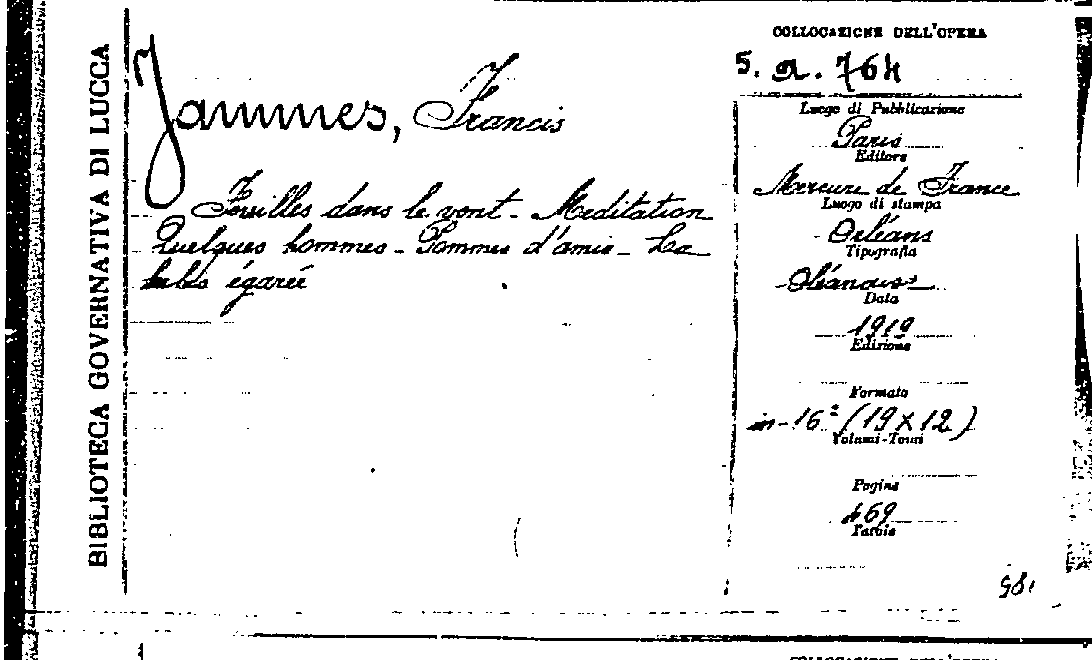 BIBLIOTECA GOVERNATIVA DI LUCCA
Jammes, Francis
Feuilles dans le vent - Meditation
Quelques hommes - Pommes d'anis - La
brebis égarée
COLLOCAZIONE DELL'OPERA
5. a. 764
Luogo di Pubblicazione
Paris
Editore
Mercure de France
Luogo di stampa
Orléans
Tipografia
Data
1919
Edizione
Formato
in-16° (19 x 12)
Volumi-Tomi
Pagine
469
Tavole
COLLOCAZIONE DELL'OPERA